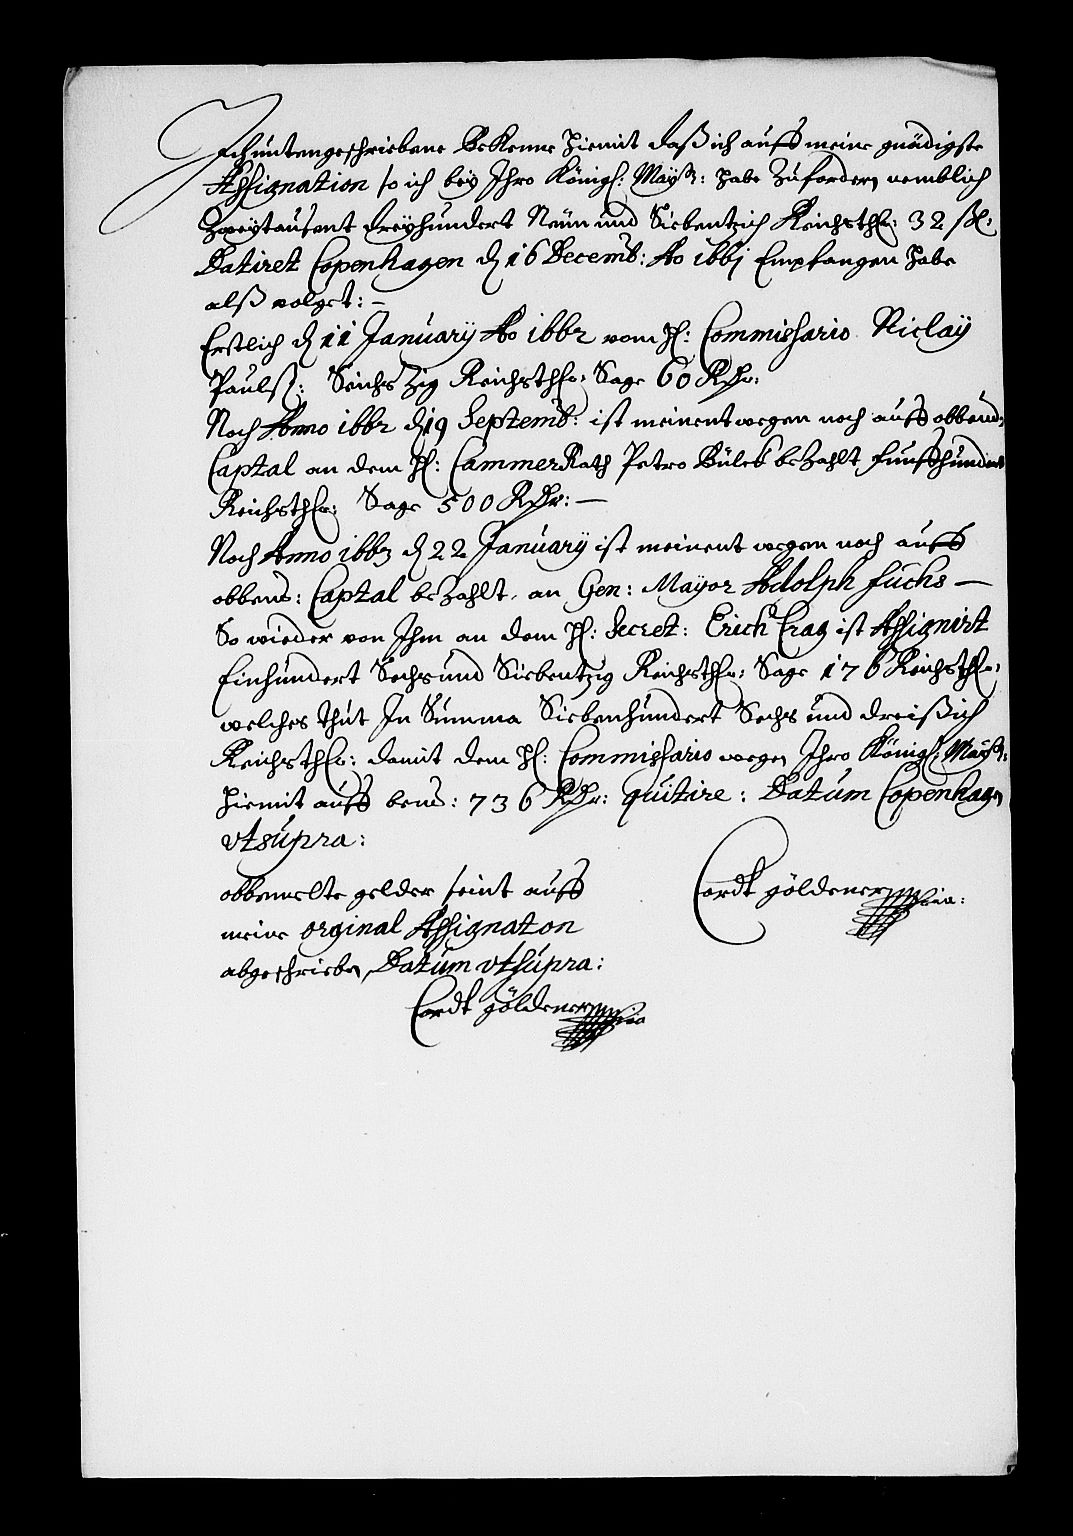 Ich untengeschriebene Bekenne hiemit daß ich auff meine gnädigste
Assignation so ich bey Ihro Königl: Maÿtt: habe Zufordern nemblich
Zweytausent dreyhundert Neün und Siebentzich Reichsthlr: 32 ßl:
Datiret Copenhagen d 16 Decemb: Ao 1661 Empfangen habe
alß volget: –
Erstlich d 11 Januarÿ Ao 1662 vom Hl: Commissario Niclaÿ
Paulß: Seichs Zig Reichsthlr: Sage 60 Rdr:
Noch Anno 1662 d 19 Septemb: ist meinentwegen noch auff obbend:
Captal an dem Hl: Cammer Rath Petro Bülch beZahlt funffhundert
Reichsthlr: Sage 500 Rdr: –
Noch Anno 1663 d 22 Januarÿ ist meinentwegen noch auff
obbens: Captal beZahlt, an Gen: Maÿor Adolph fuchs –
So wieder von Ihm an dem Hl: Secret: Erich Crag ist Assignirt
Einhundert Sechs und Siebentzig Reichsthlr: Sage 176 Reichsthlr:
welches thut In Summa Siebenhundert Sechs und dreißich
Reichsthlr: damit dem Hl: Commissario wegen Ihro Königl: Maÿtt:
hiemit auff bens: 736 Rdr: quitire: Datum Copenhagen
vtsupra:
Cordt göldener
obbemelte gelder seint auff
meine orginal Assignaton
abgeschrieben, Datum vtsupra:
Cordt göldener